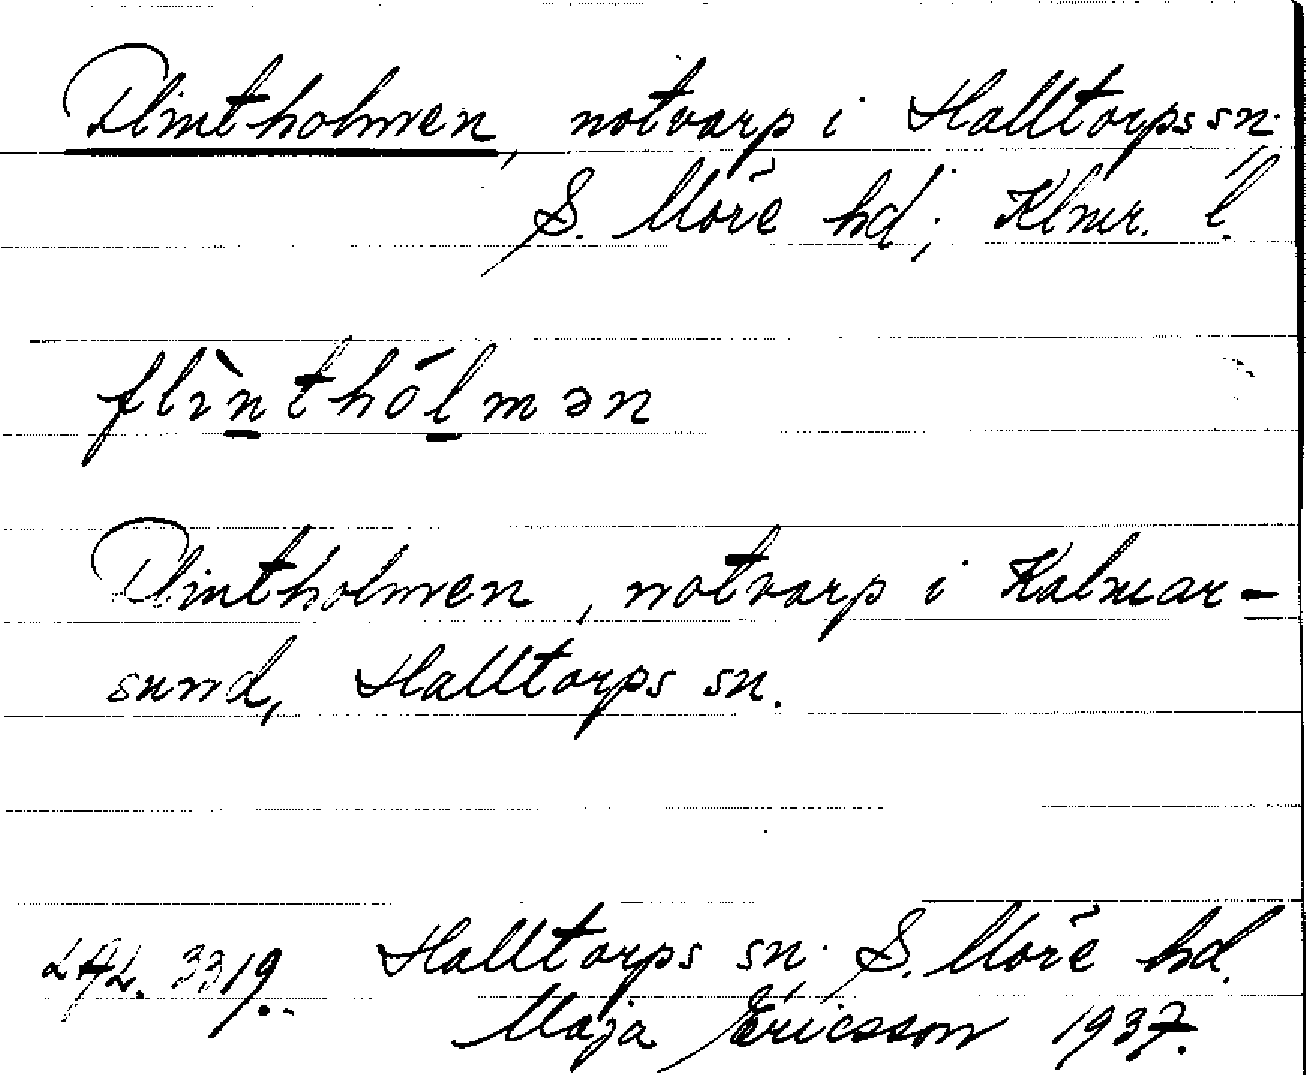 Flintholmen, notvarp i Halltorps sn.
S. Möre hd; Klmr. l.
flìnthólmən
Flintholmen, notvarp i Kalmar-
sund, Halltorps sn.
3319. Halltorps sn. S. Möre hd.
Maja Ericsson 1937.